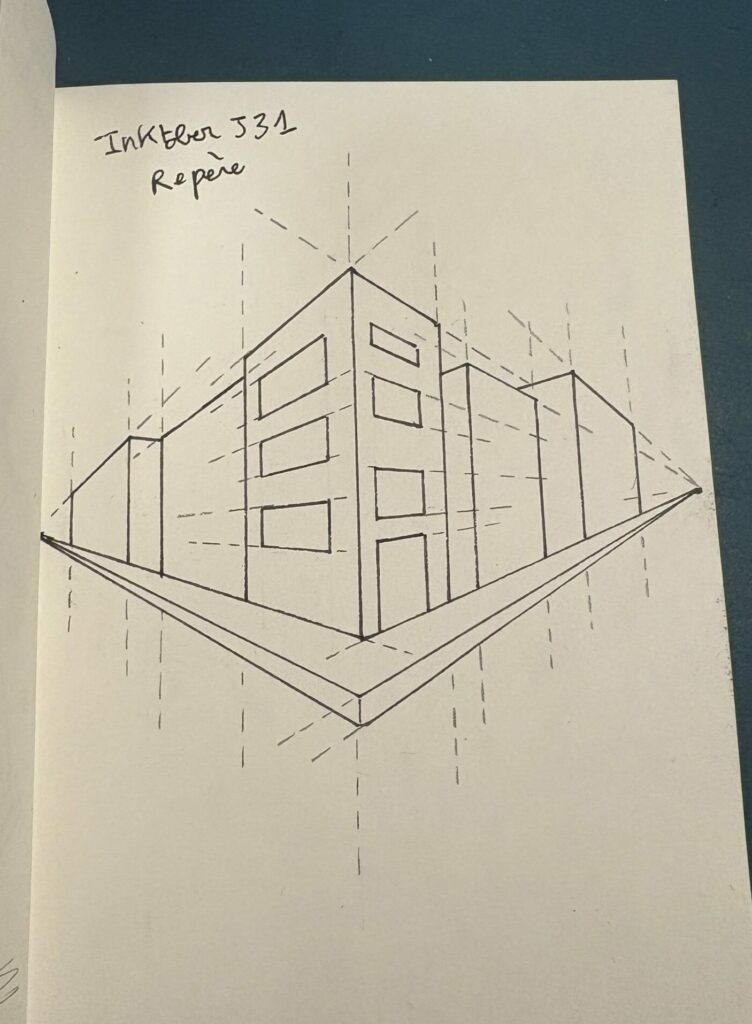 Inktober J31
Repère